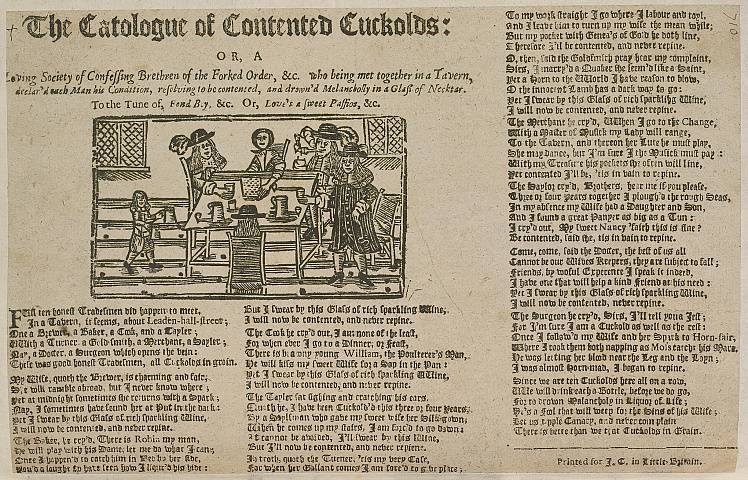 The Catologue of Contented Cuckolds:
OR, A
Loving Society of Confessing Brethren of the Forked Order, &c. who being met together in a Tavern,
declar'd each Man his Condition, resolving to be contented, and drown'd Melancholly in a Glass of Necktar.
To the Tune of, Fond Boy, &c. Or, Love's a sweet Passion, &c.
First ten honest Tradesmen did happen to meet,
In a Tavern, it seems, about Leaden-hall-street;
One a Brewer, a Baker, a Cook, and a Taylor;
With a Turner, a Gold-smith, a Merchant, a Saylor;
Nay, a Doctor, a Surgeon which opens the vein:
These was good honest Tradesmen, all Cuckolds in grain.
My Wife, quoth the Brewer, is charming and fair,
She will ramble abroad, but I never know where,
Yet at midnight sometimes she returns with a Spark;
Nay, I sometimes have found her at Put in the dark:
Yet I swear by this Glass of rich sparkling Wine,
I will now be contented, and never repine.
The Baker, he cry'd, There is Robin my man,
He will play with his Dame; let me do what I can;
Once I happen'd to catch him in bed
You'd a laught to have seen how I liquor'd his hide:
But I swear by this Glass of rich sparkling Wine,
I will now be contented, and never repine.
The Cook he cry'd out, I am none of the least,
For when ever I go to a Dinner, or Feast,
There is my young William, the Poulterer's Man,
He will kiss my sweet Wife for a Sop in the Pan:
Yet I swear by this Glass of rich sparkling Wine,
I will now be contented, and never repine.
The Taylor sat sighing and cratching his ears,
Quoth he, I have been Cuckold'd this three or four years;
By a Spellman who gave my sweet wife her Silk gown;
When he comes up my stairs, I am forc'd to go down:
It cannot be avoided, I'll swear by this Wine,
But I'll now be contented, and never repine.
In troth quoth the Turner, 'tis my very Case,
For when her Gallant comes I am forc'd to give place;
To my work straight I go where I labour and toyl,
And I leave him to turn up my wife the mean while;
But my pocket with Genea's of Gold he doth line,
Therefore I'll be contented, and never repine.
O, then, said the Goldsmith pray hear my complaint,
Sirs, I marry'd a Quaker she seem'd like a Saint,
Yet a Horn to the World I have reason to blow,
O the innocent Lamb has a dark way to go:
Yet I swear by this Glass of rich sparkling Wine,
I will now be contented, and never repine.
The Merchant he cry'd, When I go to the Change,
With a Master of Musick my Lady will range,
To the Tavern, and thereon her Lute he must play,
She may dance, but I'm sure I the Musick must pay:
With my Treasure his pockets she often will line,
Yet contented I'll be, 'tis in vain to repine.
The Saylor cry'd, Brothers, hear me if you please,
Three or four years together I plough'd the rough Seas,
In my absence my Wife had a Daughter and Son,
And I found a great Panyer as big as a Tun:
I cry'd out, My sweet Nancy 'faith this is fine?
Be contented, said she, tis in vain to repine.
Come, come, said the Doctor, the best of us all
Cannot be our Wives Keepers, they are subject to fall;
Friends, by woful Experience I speak it indeed,
I have one that will help a kind Friend at his need:
Yet I swear by this Glass of rich sparkling Wine,
I will now be contented, never repine.
The Surgeon he cry'd, Sirs, I'll tell you a Jest;
For I'm sure I am a Cuckold as well as the rest:
Once I follow'd my Wife and her Spark to Horn-fair,
Where I took them both napping as Moss catch'd his Mare.
He was letting her blood near the Leg and the Loyn;
I was almost Horn-mad, I began to repine.
Since we are ten Cuckolds here all on a row,
We will drink each a Bottle, before we do go,
For to drown Melancholy in Liquor of Life;
He's a Fool that will weep for the sins of his Wife;
Let us tipple Canary, and never complain
There is here than we that Cuckolds in Grain.
Printed for J. C. in Little-Britain.